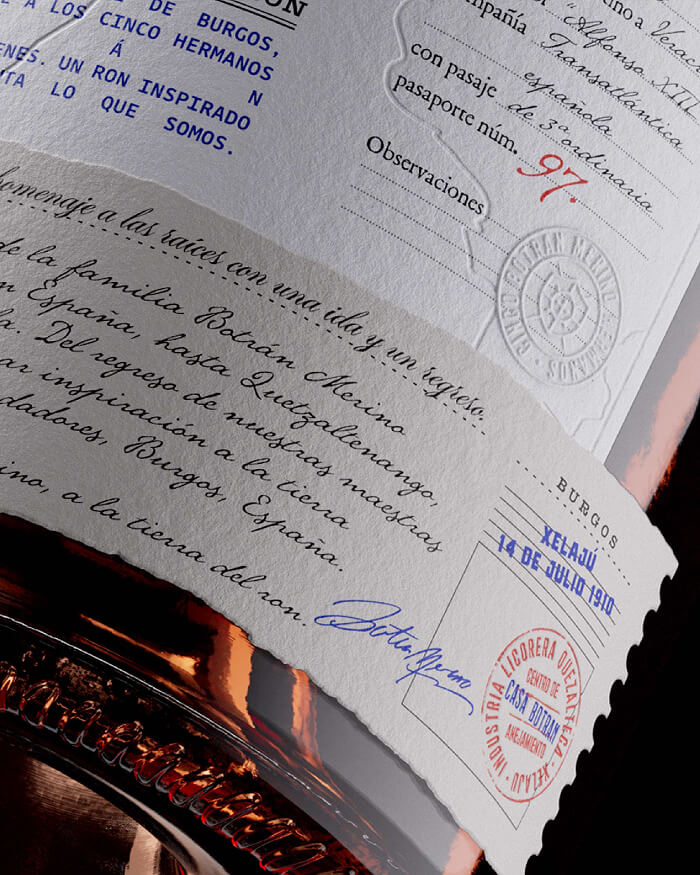 ÓN
DE BURGOS,
E A LOS CINCO HERMANOS
Á N
ENES. UN RON INSPIRADO
TA LO QUE SOMOS.
ino a Verac
mpañía "Alfonso XIII
Transatlántica
con pasaje española
pasaporte núm. de 3ª ordinaria
97.
Observaciones
CINCO BOTRAN MERINO HERMANOS
homenaje a las raíces con una ida y un regreso.
de la familia Botrán Merino
n España, hasta Quetzaltenango,
la. Del regreso de nuestras maestras
ar inspiración a la tierra
dadores, Burgos, España.
ino, a la tierra del ron.
BURGOS
XELAJÚ
14 DE JULIO 1910
INDUSTRIA LICORERA QUEZALTECA · XELAJU ·
CENTRO DE
CASA BOTRAN
AÑEJAMIENTO